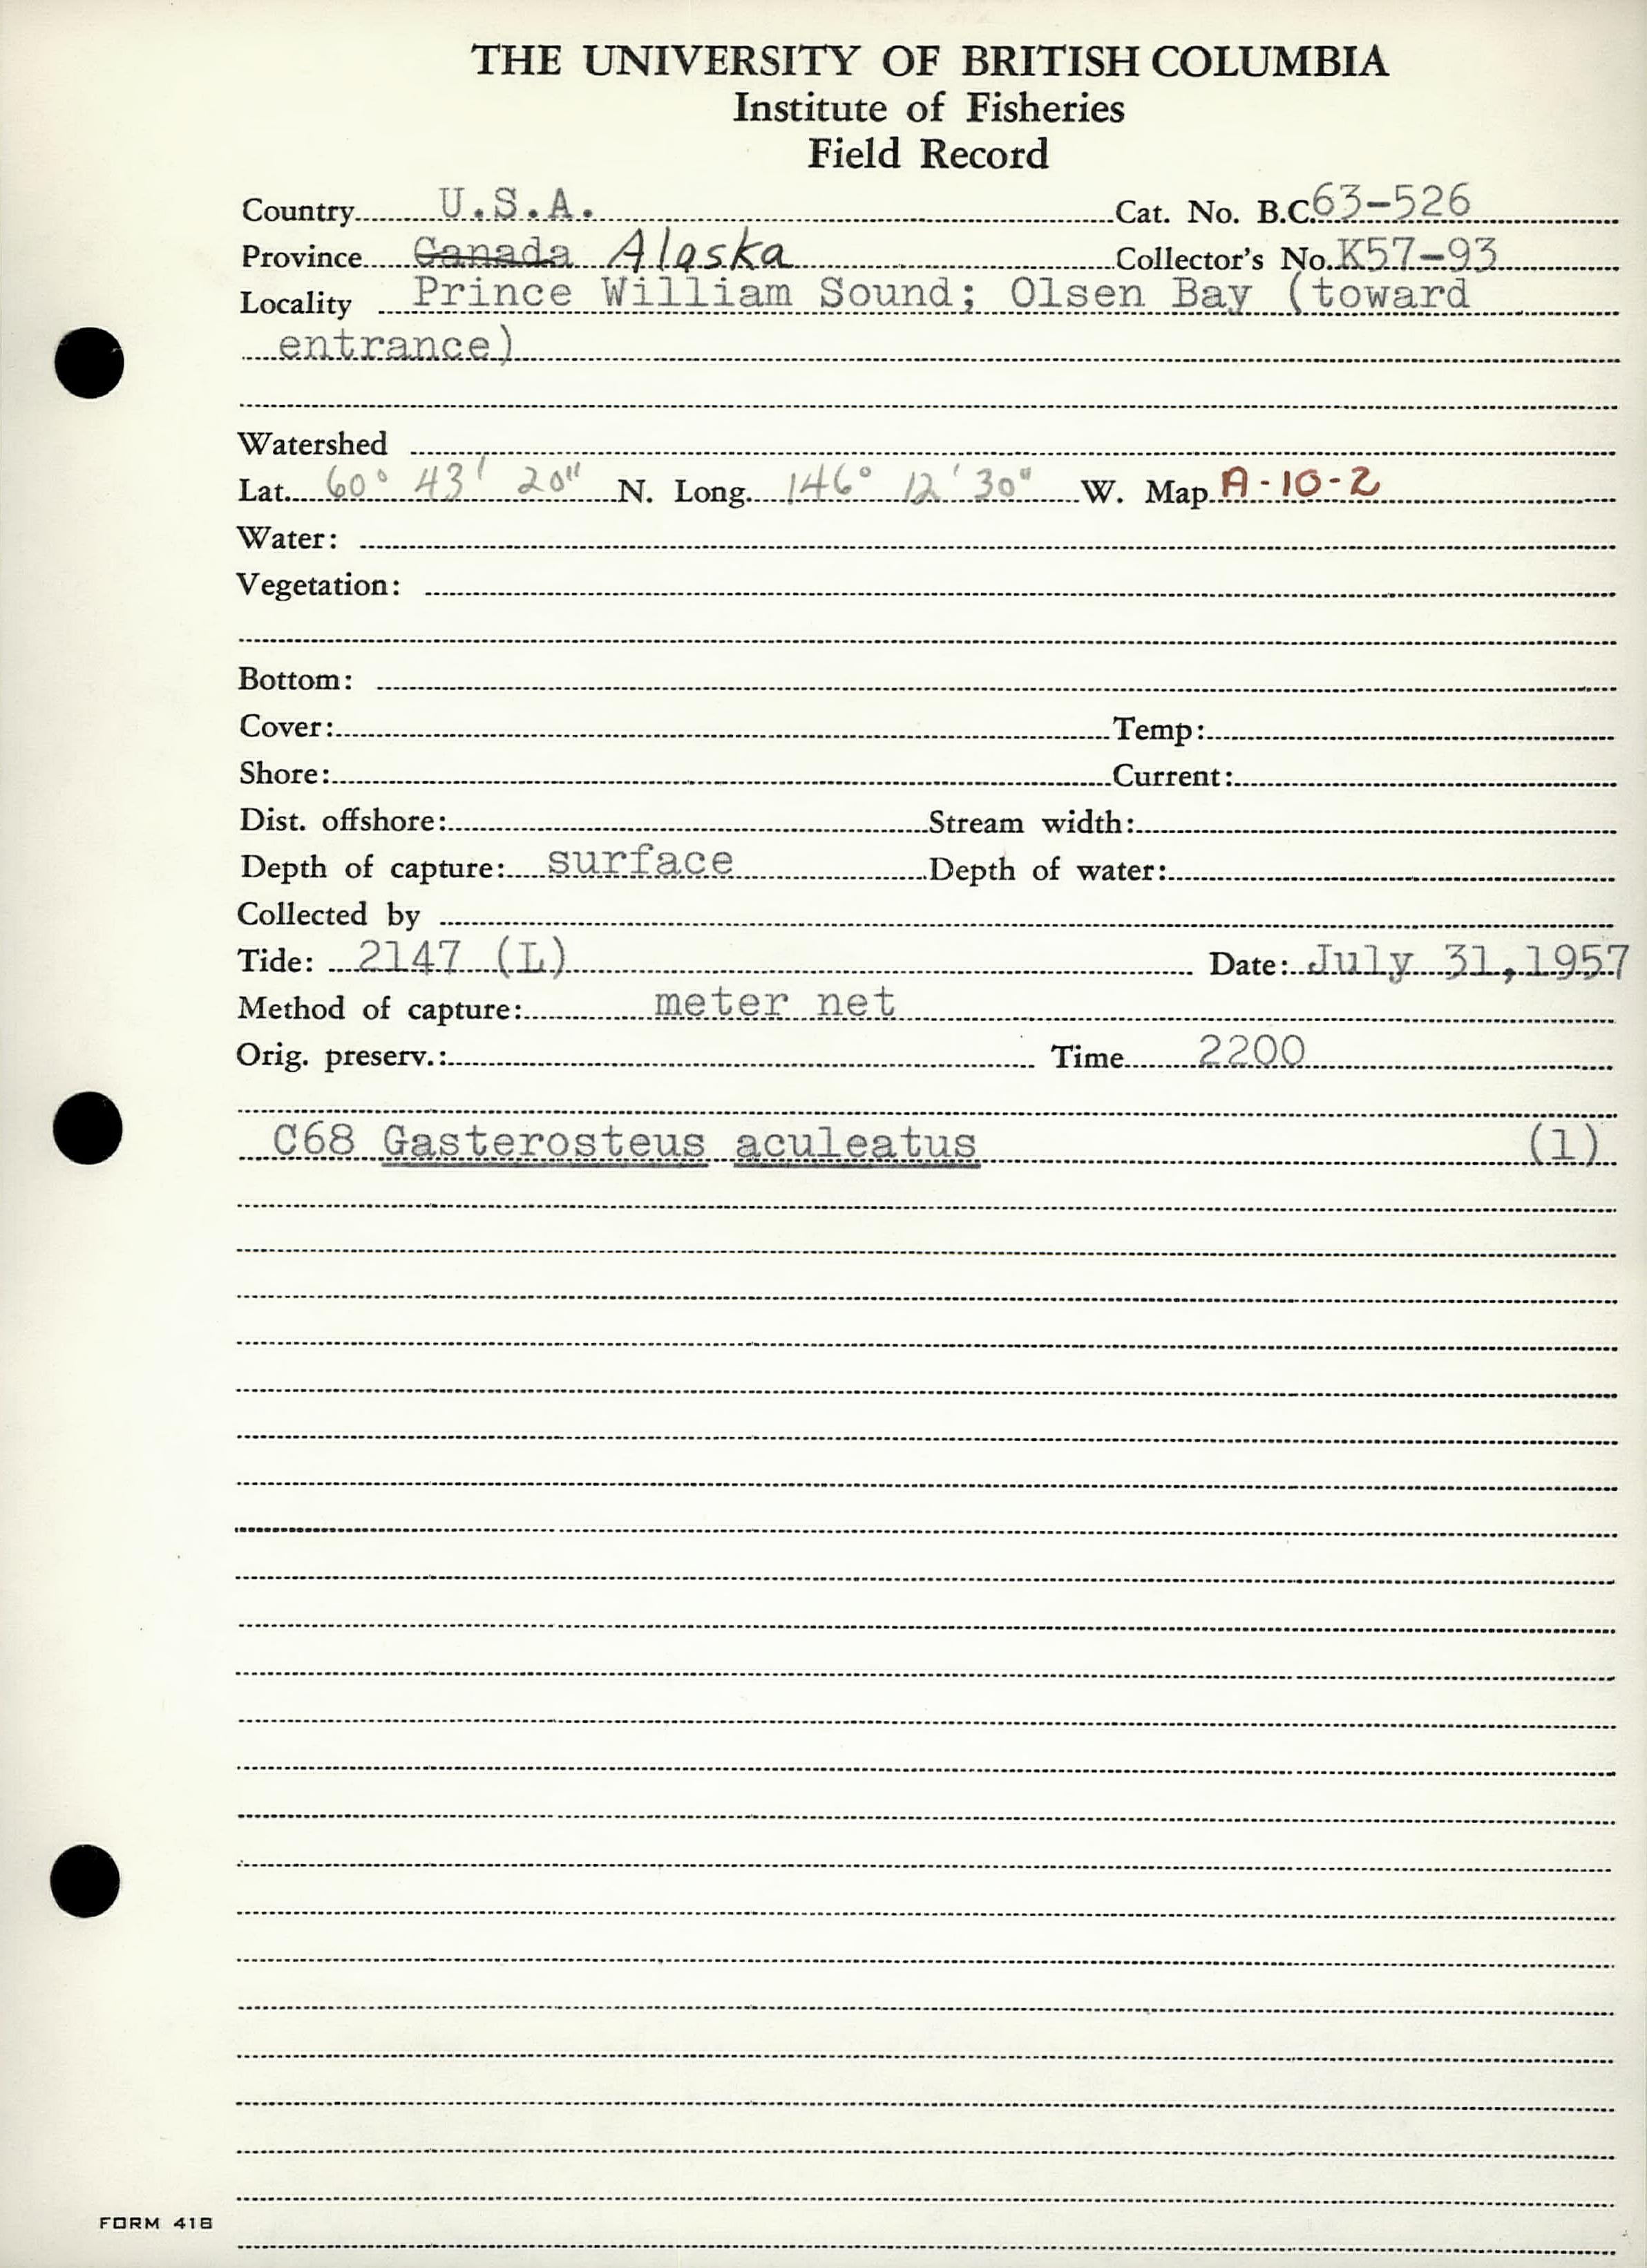 THE UNIVERSITY OF BRITISH COLUMBIA
Institute of Fisheries
Field Record
Country U.S.A. Cat. No. B.C. 63-526
Province Canada Alaska Collector's No. K57-93
Locality Prince William Sound; Olsen Bay (toward
entrance)
Watershed
Lat. 60° 43' 20" N. Long. 146° 12' 30" W. Map A-10-2
Water:
Vegetation:
Bottom:
Cover: Temp:
Shore: Current:
Dist. offshore: Stream width:
Depth of capture: surface Depth of water:
Collected by
Tide: 2147 (L) Date: July 31, 1957
Method of capture: meter net
Orig. preserv.: Time 2200
C68 Gasterosteus aculeatus (1)
FORM 41B